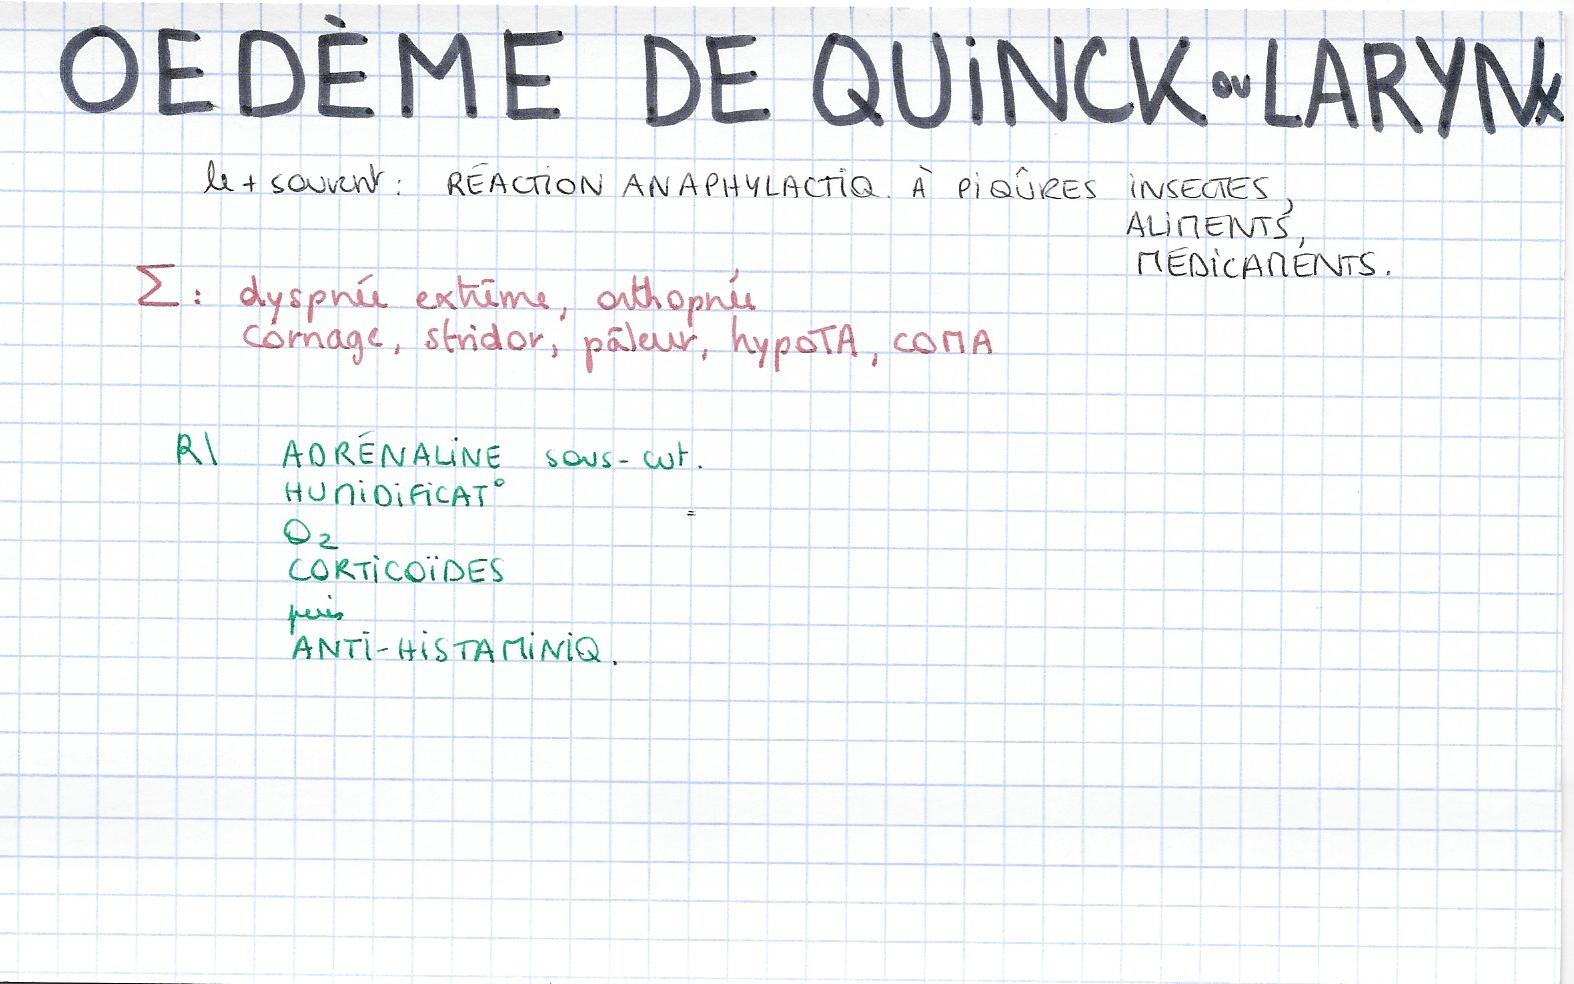 OEDÈME DE QUiNCK ou LARYNx
le + souvent : RÉACTiON ANAPHYLACTiQ. À PiQÛRES iNSECTES,
ALiMENTS,
MÉDiCAMENTS.
Σ : dyspnée extrême, orthopnée
cornage, stridor, pâleur, hypoTA, COMA
R/ ADRÉNALiNE sous-cut.
HUMiDiFiCAT°
O2
CORTiCOÏDES
puis
ANTi-HiSTAMiNiQ.